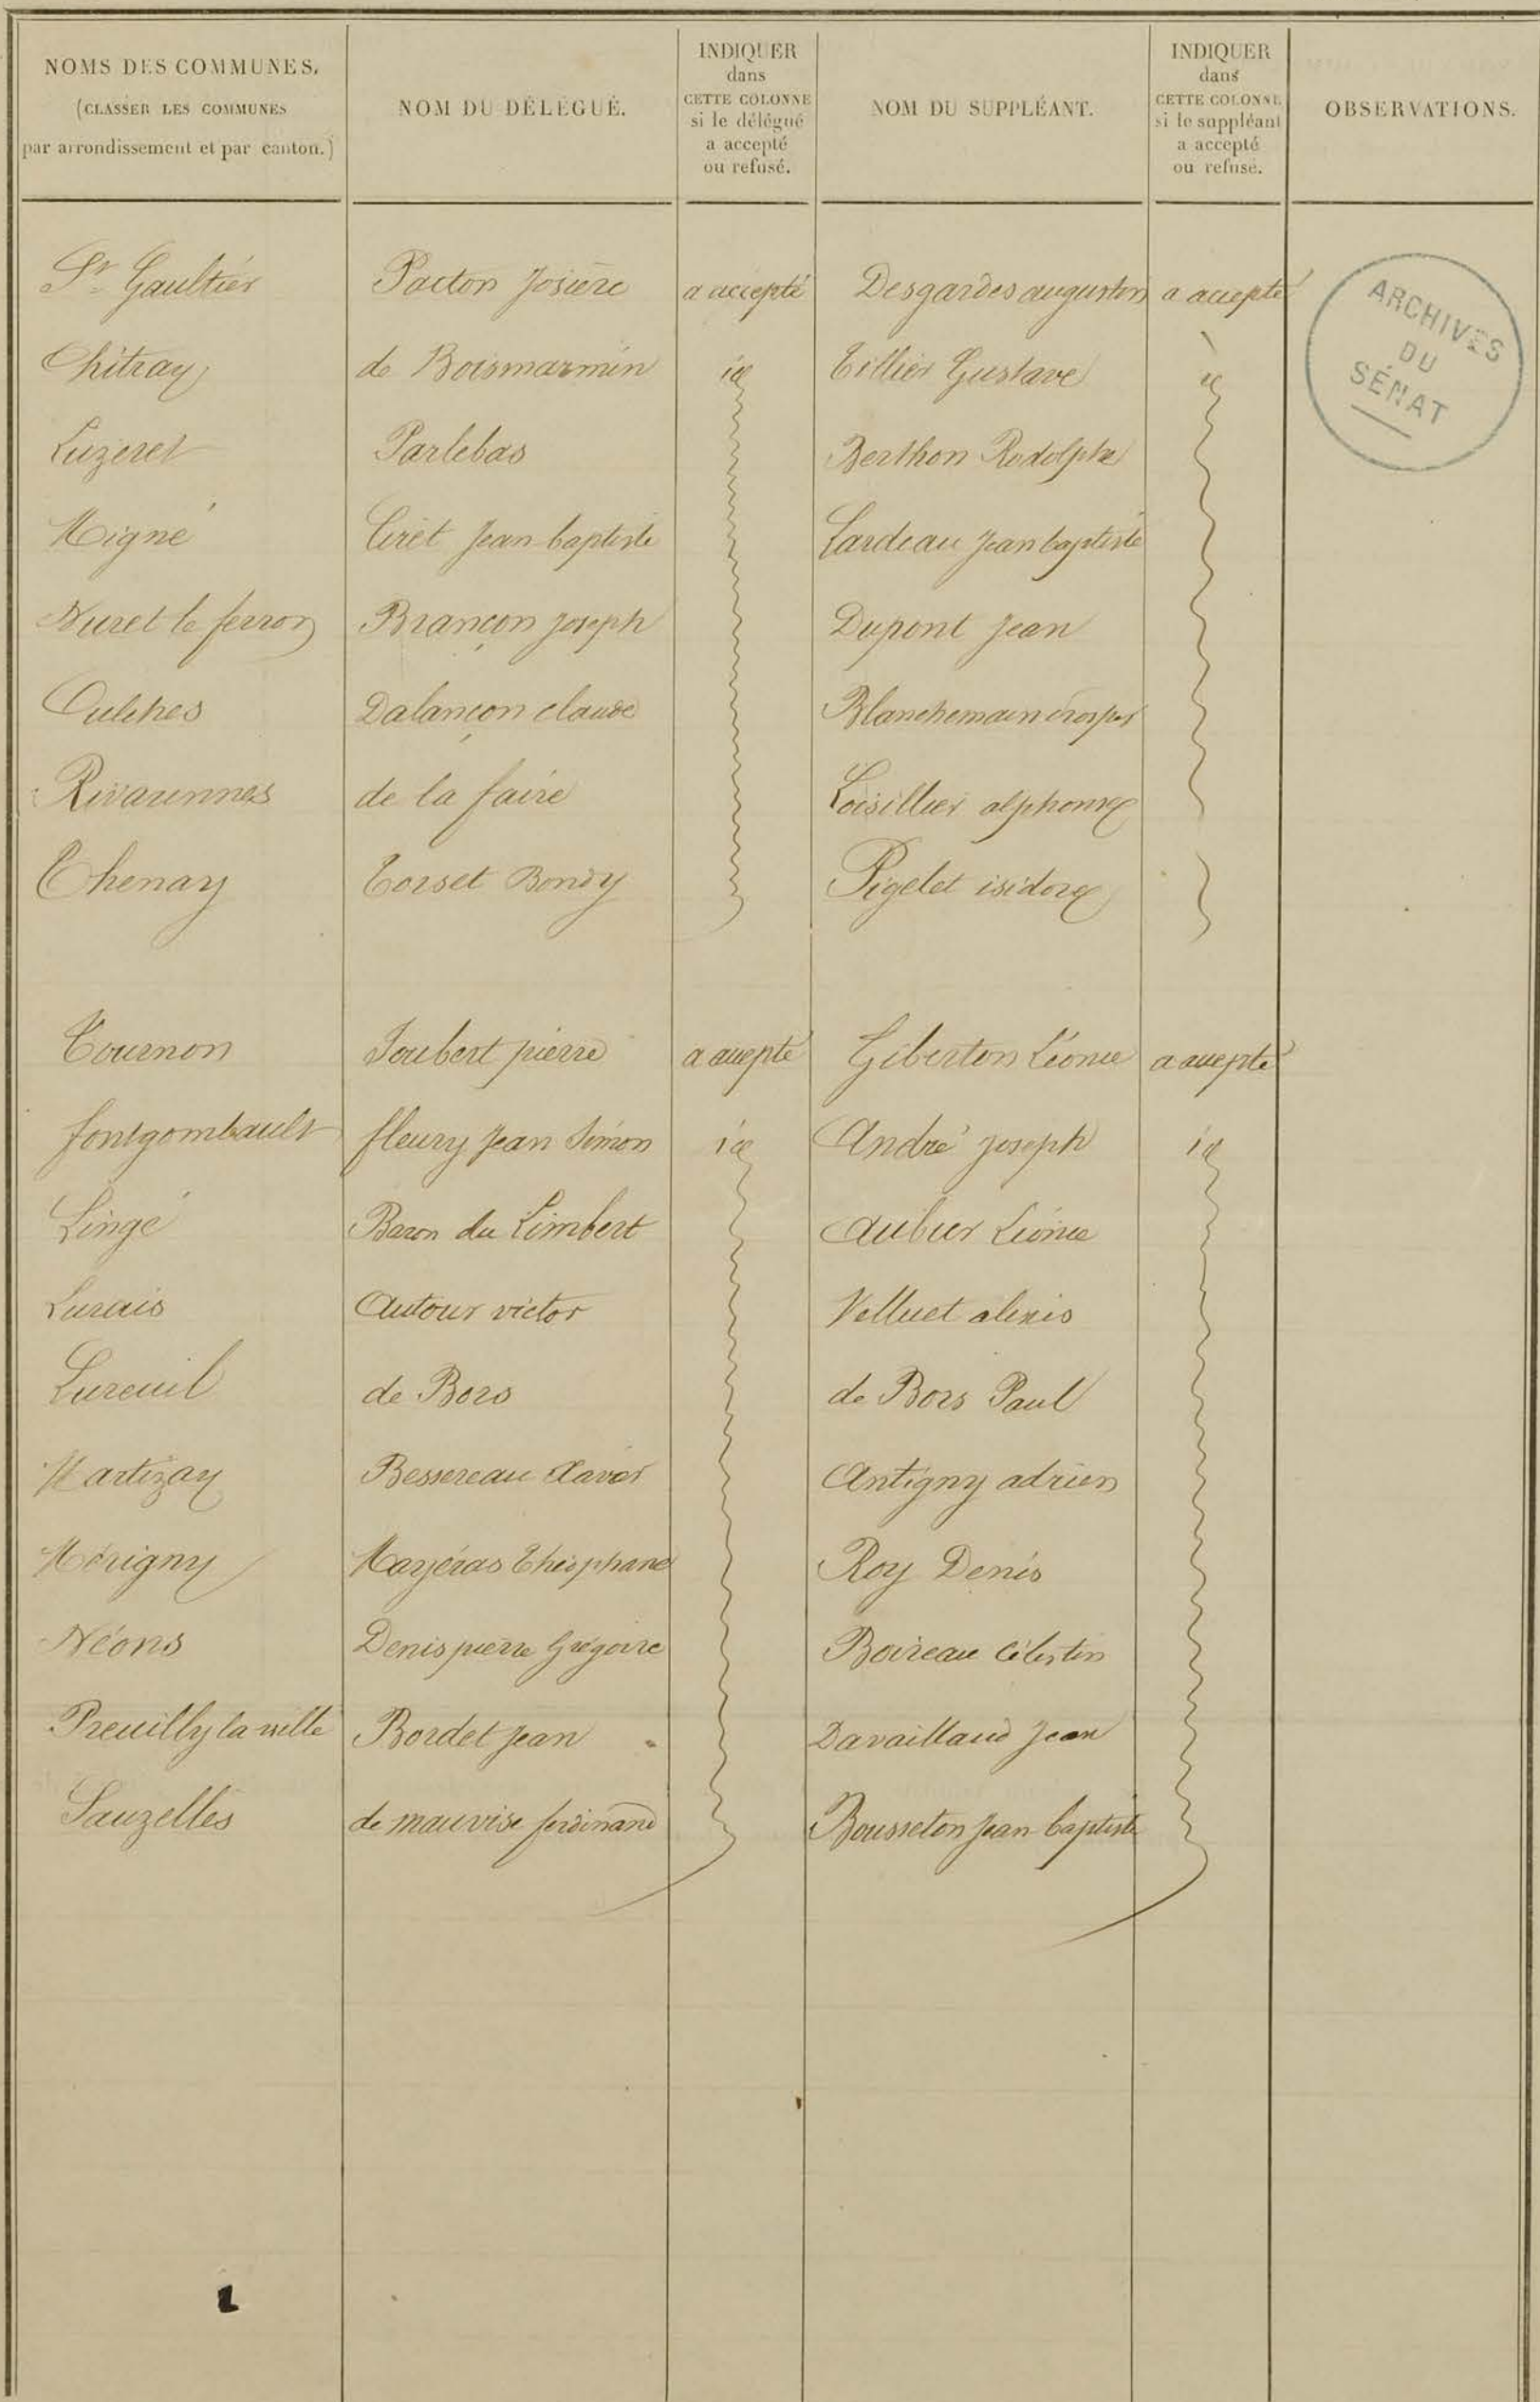 NOMS DES COMMUNES.
(CLASSER LES COMMUNES
par arrondissement et par canton.)
NOM DU DÉLÉGUÉ.
INDIQUER
dans
CETTE COLONNE
si le délégué
a accepté
ou refusé.
NOM DU SUPPLÉANT.
INDIQUER
dans
CETTE COLONNE
si le suppléant
a accepté
ou refusé.
OBSERVATIONS.
St Gaultier Pacton a accepté Desgardes augustin a accepté
Chitray de Boismarmin id Tillier Gustave id
Luzeret Parlebas Berthon Rodolphe
Migné Ciret Jean-baptiste Lardeau Jean baptiste
Nuret le ferron Brançon Joseph Dupont Jean
Oulches Dalançon claude Blanchemain
Rivarennes de la faire Loisillier alphonse
Thenay Torset Bondy Pigelet isidore
Tournon Joubert pierre a accepté Giberton Léonce a accepté
fontgombault fleury Jean Simon id André Joseph id
Lingé Baron du Limbert Aubier Léonce
Lurais Autour victor Velluet alexis
Lureuil de Bors de Bors Paul
Martizay Bessereau Xavier Antigny adrien
Mérigny Théophane Roy Denis
Néons Denis pierre Grégoire Boireau Célestin
Preuilly la ville Bordet Jean Davaillaud Jean
Sauzelles de mauvise ferdinand Bousseton Jean-baptiste
ARCHIVES
DU
SÉNAT